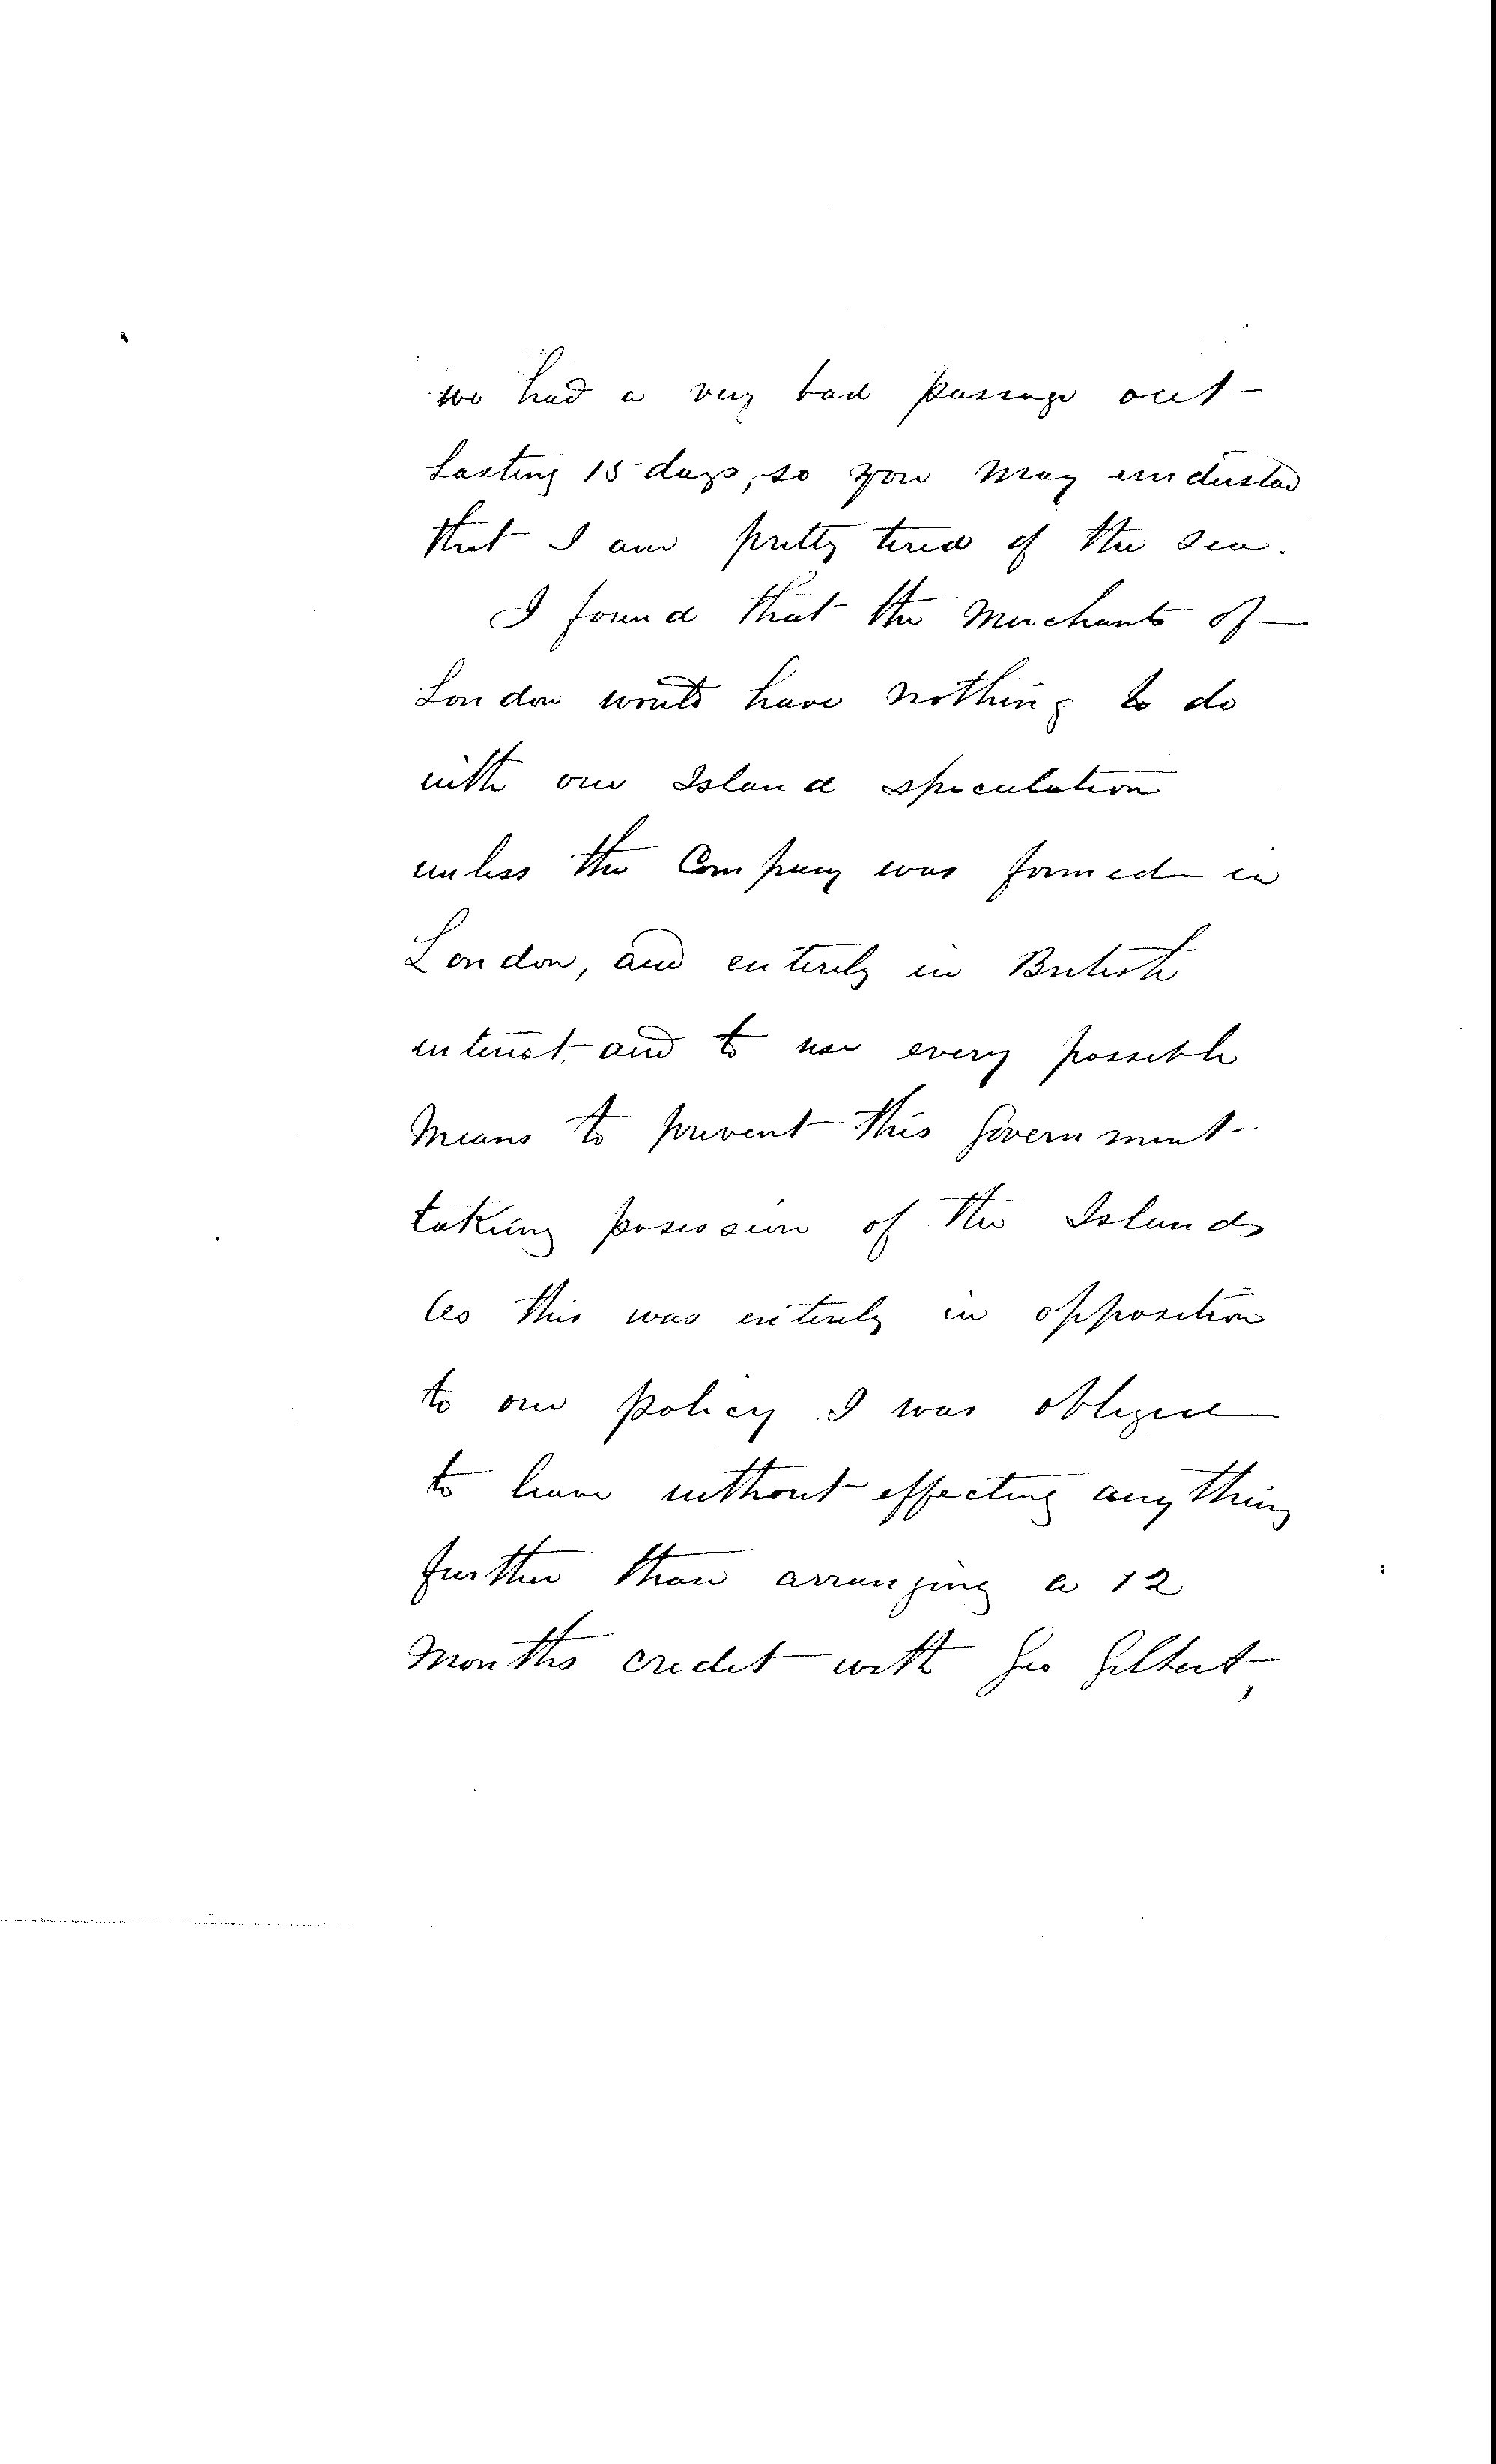 we had a very bad passage out
lasting 15 days, so you may understand
that I am pretty tired of the sea.
I found that the Merchants of
London would have nothing to do
with our Island speculation
unless the Company was formed in
London, and entirely in British
interest and to use every possible
means to prevent this Government
taking posession of the Islands
As this was entirely in opposition
to our policy I was obliged
to leave without effecting anything
further than arranging a 12
months credit with Geo Gilbert,